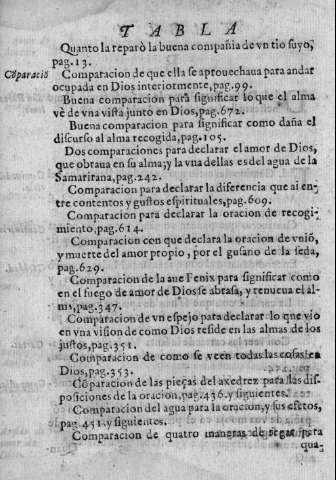 TABLA
Quanto la reparò la buena compañia de vn tio suyo,
pag.13.
Cõparació Comparacion de que ella se aprouechaua para andar
ocupada en Dios interiormente, pag.99.
Buena comparacion para significar lo que el alma
vè de vna vista junto en Dios, pag.672.
Buena comparacion para significar como daña el
discurso al alma recogida, pag.105.
Dos comparaciones para declarar el amor de Dios,
que obraua en su alma; y la vna dellas es del agua de la
Samaritana, pag.242.
Comparacion para declarar la diferencia que ai en-
tre contentos y gustos espirituales, pag.609.
Comparacion para declarar la oracion de recogi-
miento, pag.614.
Comparacion con que declara la oracion de vniõ,
y muerte del amor propio, por el gusano de la seda,
pag.629.
Comparacion de la aue Fenix para significar como
en el fuego de amor de Dios se abrasa, y renueua el al-
ma, pag.347.
Comparacion de vn espejo para declarar lo que vio
en vna vision de como Dios reside en las almas de los
justos, pag.351.
Comparacion de como se veen todas las cosas en
Dios, pag.353.
Cõparacion de las pieças del axedrez para las dis-
posiciones de la oracion, pag.436. y siguientes.
Comparacion del agua para la oracion, y sus efetos,
pag.451. y siguientes.
Comparacion de quatro maneras de regar para
qua-